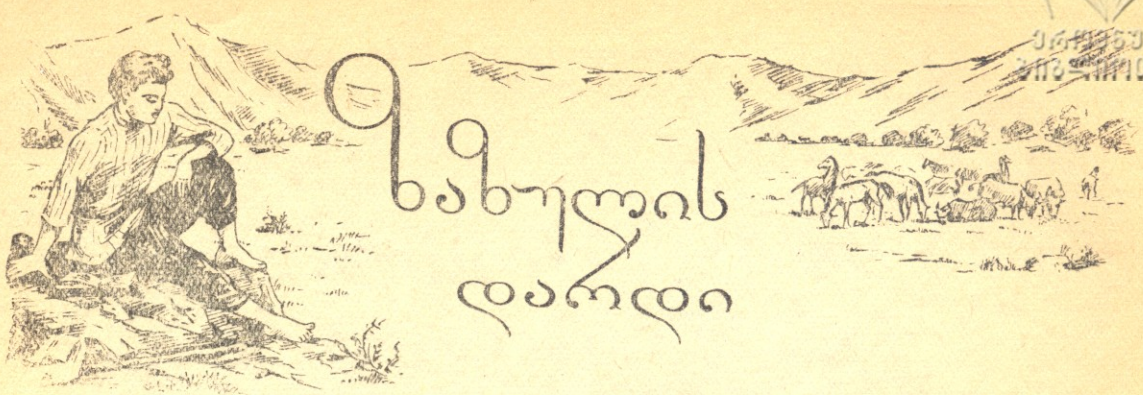 ხახულის
დარდი